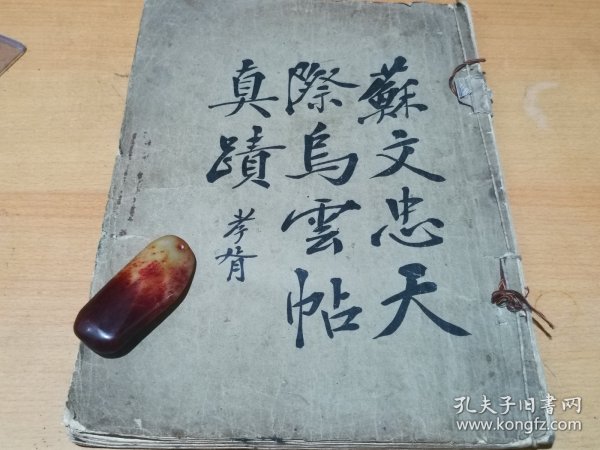 蘇文忠天
際烏雲帖
真蹟
孝胥
孔夫子旧书网
www.kongfz.com